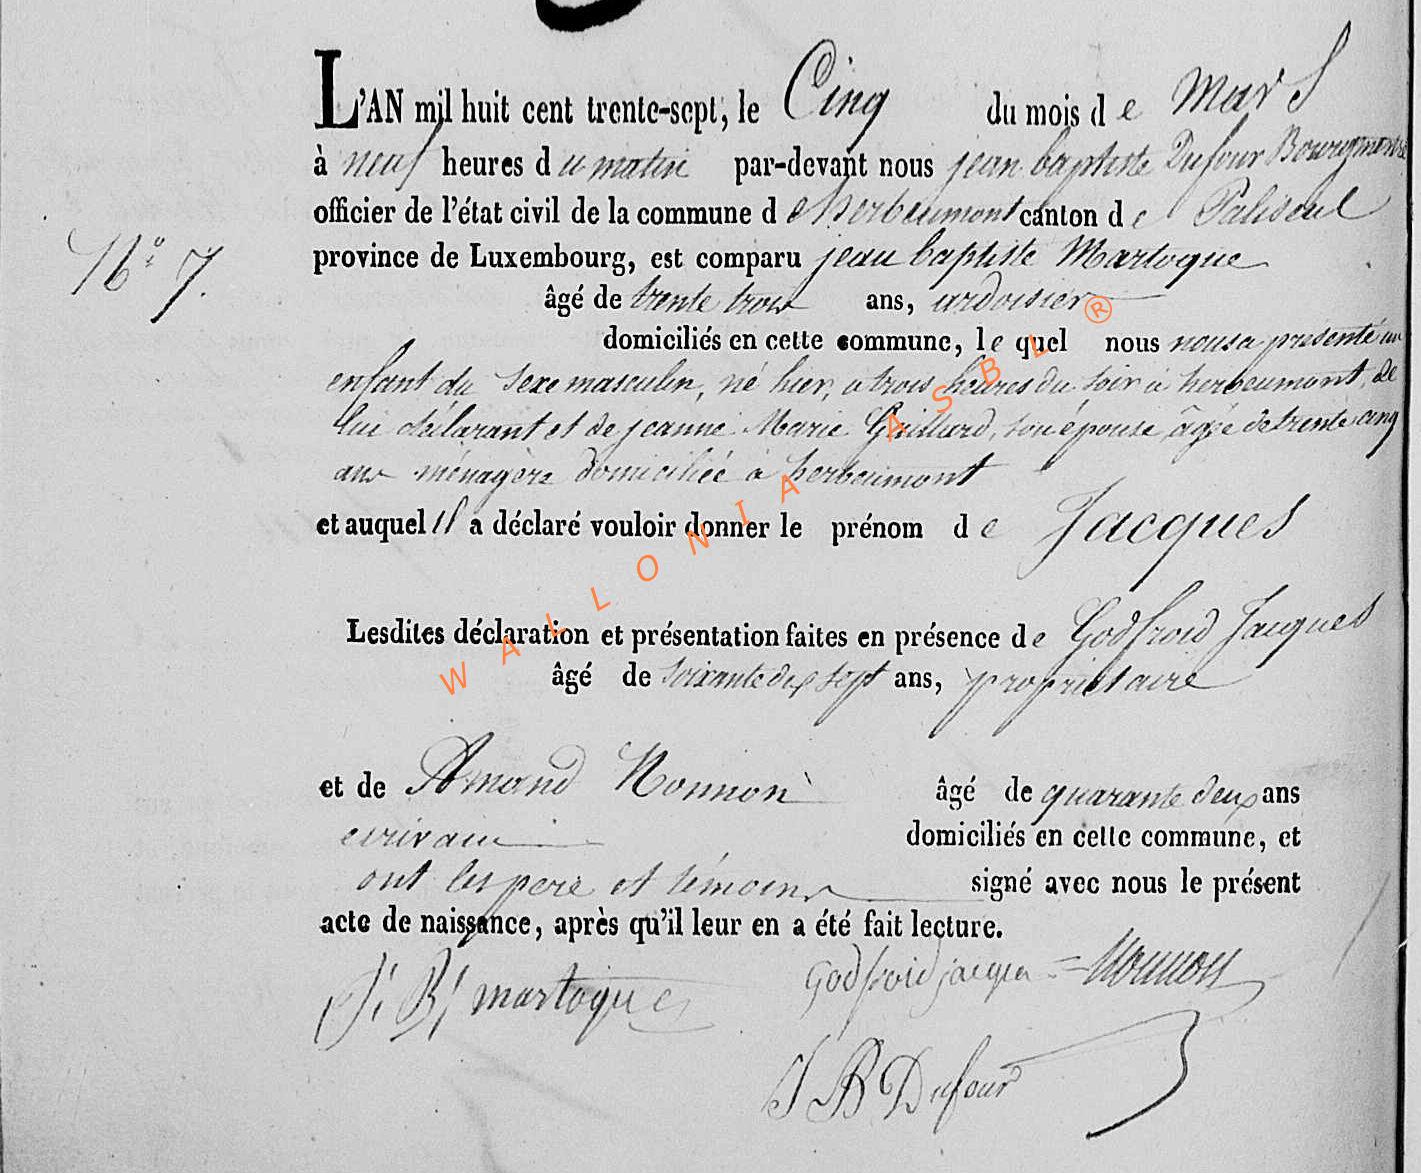 L'AN mil huit cent trente-sept, le Cinq du mois de mars
à neuf heures du matin par-devant nous jean baptiste Dufour Bourgmestre
officier de l'état civil de la commune d'herbeumont canton de Paliseul
N° 7.
province de Luxembourg, est comparu jean baptiste Martoque
âgé de trente trois ans, ardoisier
domiciliés en cette commune, le quel nous nous a présenté un
enfant du sexe masculin, né hier, a trois heures du soir à herbeumont, de
lui déclarant et de jeanne Marie Grillard, son épouse âgée de trente cinq
ans ménagère domiciliée à herbeumont
et auquel il a déclaré vouloir donner le prénom de Jacques
Lesdites déclaration et présentation faites en présence de Godfroid Jacques
âgé de soixante dix sept ans, propriétaire
et de Amand Nonnon âgé de quarante deux ans
ecrivain domiciliés en cette commune, et
ont les pere et témoins signé avec nous le présent
acte de naissance, après qu'il leur en a été fait lecture.
J. B. martoque Godfroid jacques Nonnon
J B Dufour
WALLONIA ASBL ®